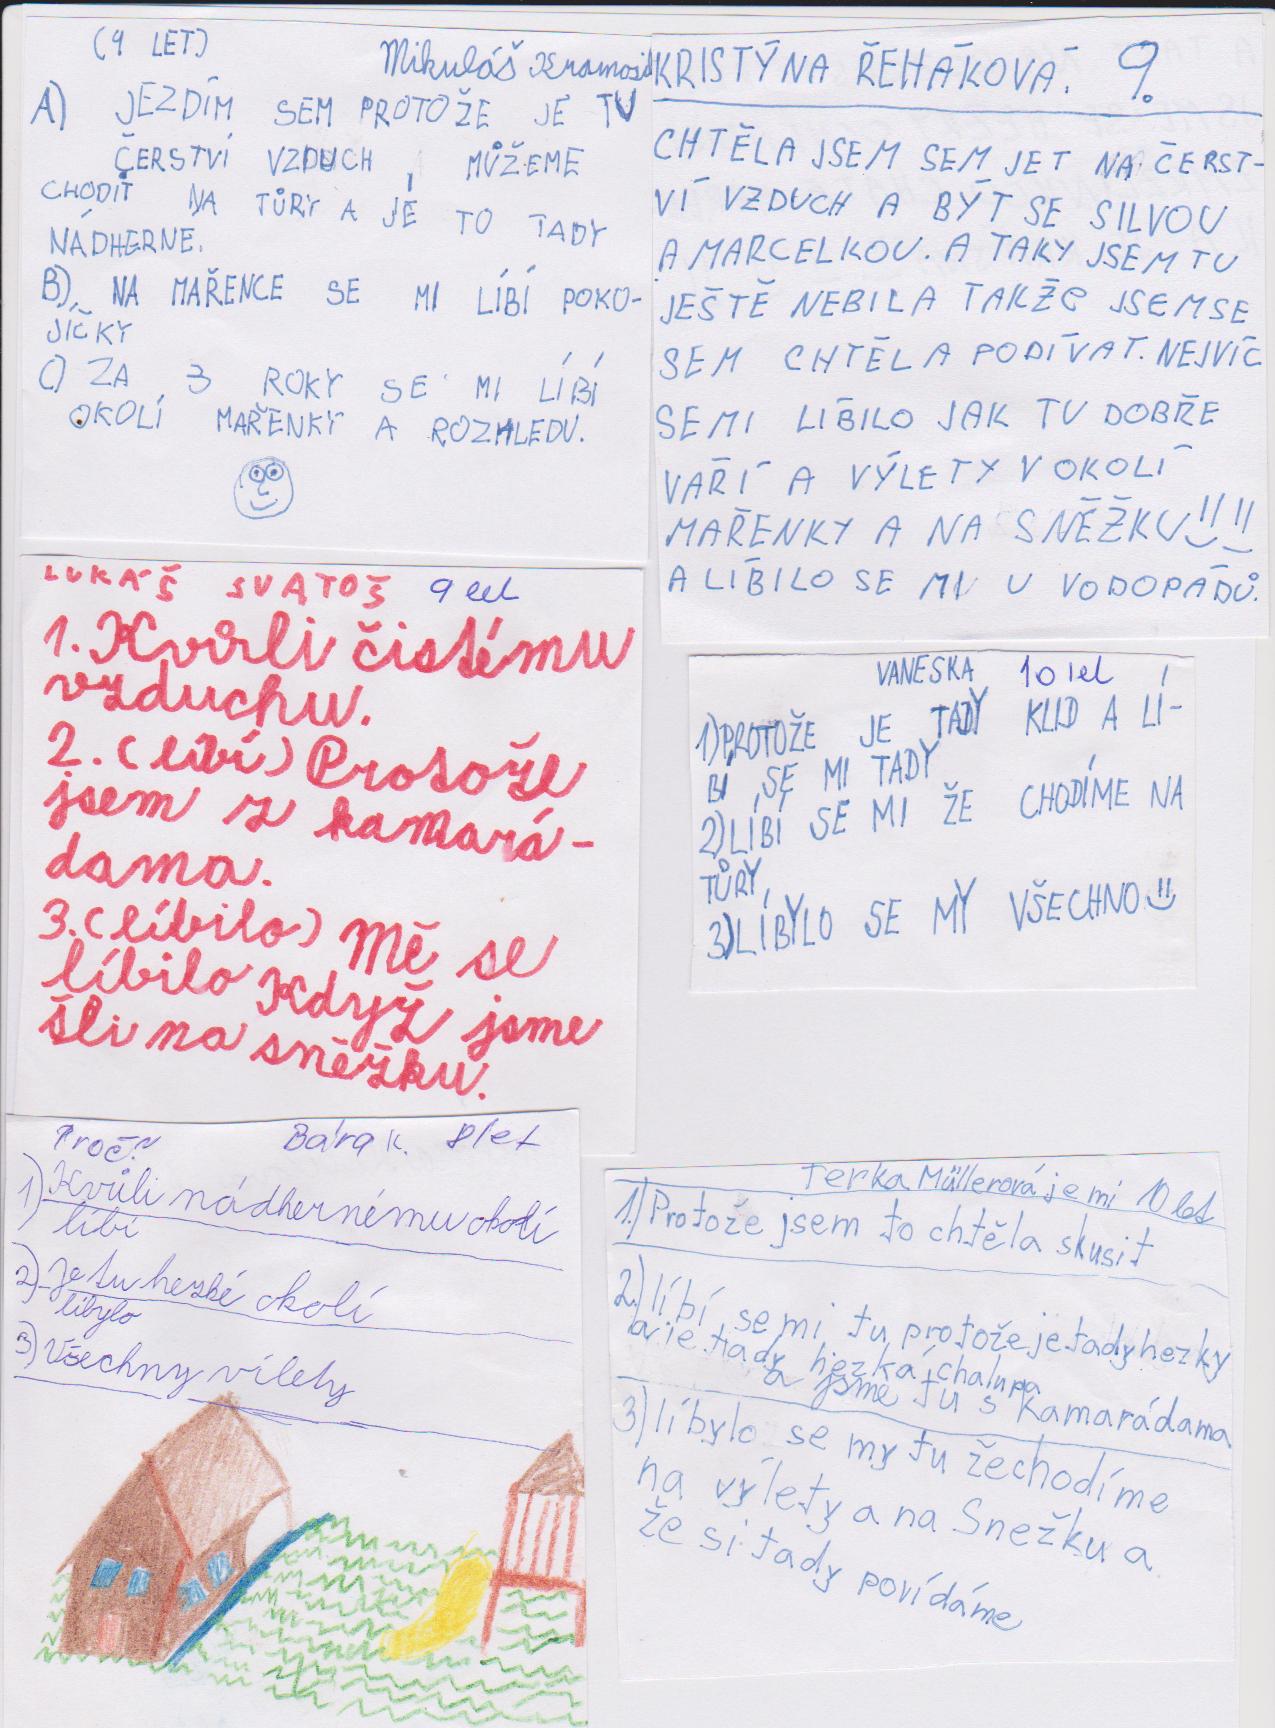 (9 LET)
Mikuláš Kramosil
A) JEZDÍM SEM PROTOŽE JE TU
ČERSTVÍ VZDUCH, MŮŽEME
CHODIT NA TŮRY A JE TO TADY
NÁDHERNE.
B) NA MAŘENCE SE MI LÍBÍ POKO-
JÍČKY
C) ZA 3 ROKY SE MI LÍBÍ
OKOLÍ MAŘENKY A ROZHLEDU.
KRISTÝNA ŘEHÁKOVÁ. 9.
CHTĚLA JSEM SEM JET NA ČERST-
VÍ VZDUCH A BÝT SE SILVOU
A MARCELKOU. A TAKY JSEM TU
JEŠTĚ NEBILA TAKŽE JSEMSE
SEM CHTĚLA PODÍVAT. NEJVÍC
SEMI LÍBILO JAK TU DOBŘE
VAŘÍ A VÝLETY V OKOLÍ
MAŘENKY A NA SNĚŽKU!!!!
A LÍBILO SE MI U VODOPÁDŮ.
LUKÁŠ SVATOŠ 9 let
1. Kvůli čistému
vzduchu.
2. (líbí) Protože
jsem z kamará-
dama.
3. (líbilo) Mě se
líbilo Když jsme
šli na sněžku.
VANESKA 10 let
1) PROTOŽE JE TADY KLID A LÍ-
BÍ SE MI TADY
2) LÍBÍ SE MI ŽE CHODÍME NA
TŮRY,
3) LÍBYLO SE MY VŠECHNO!!
Proč? Bára K. 8 let
1) Kvůli nádhernému okolí
líbí
2) Je tu hezké okolí
líbylo
3) Všechny vílety
Terka Müllerová je mi 10 let
1.) Protože jsem to chtěla skusit
2.) líbí se mi tu protože je tady hezky
a je tady hezká chalupa
a jsme tu s kamarádama
3.) líbylo se my tu že chodíme
na výlety a na Snežku a
že si tady povídáme